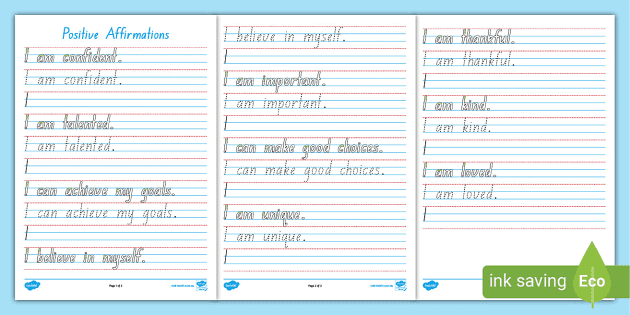 Positive Affirmations
I am confident.
I am confident.
I
I am talented.
I am talented.
I
I can achieve my goals.
I can achieve my goals.
I
I believe in myself.
I believe in myself.
I
I am important.
I am important.
I
I can make good choices.
I can make good choices.
I
I am unique.
I am unique.
I
I am thankful.
I am thankful.
I
I am kind.
I am kind.
I
I am loved.
I am loved.
I
ink saving Eco